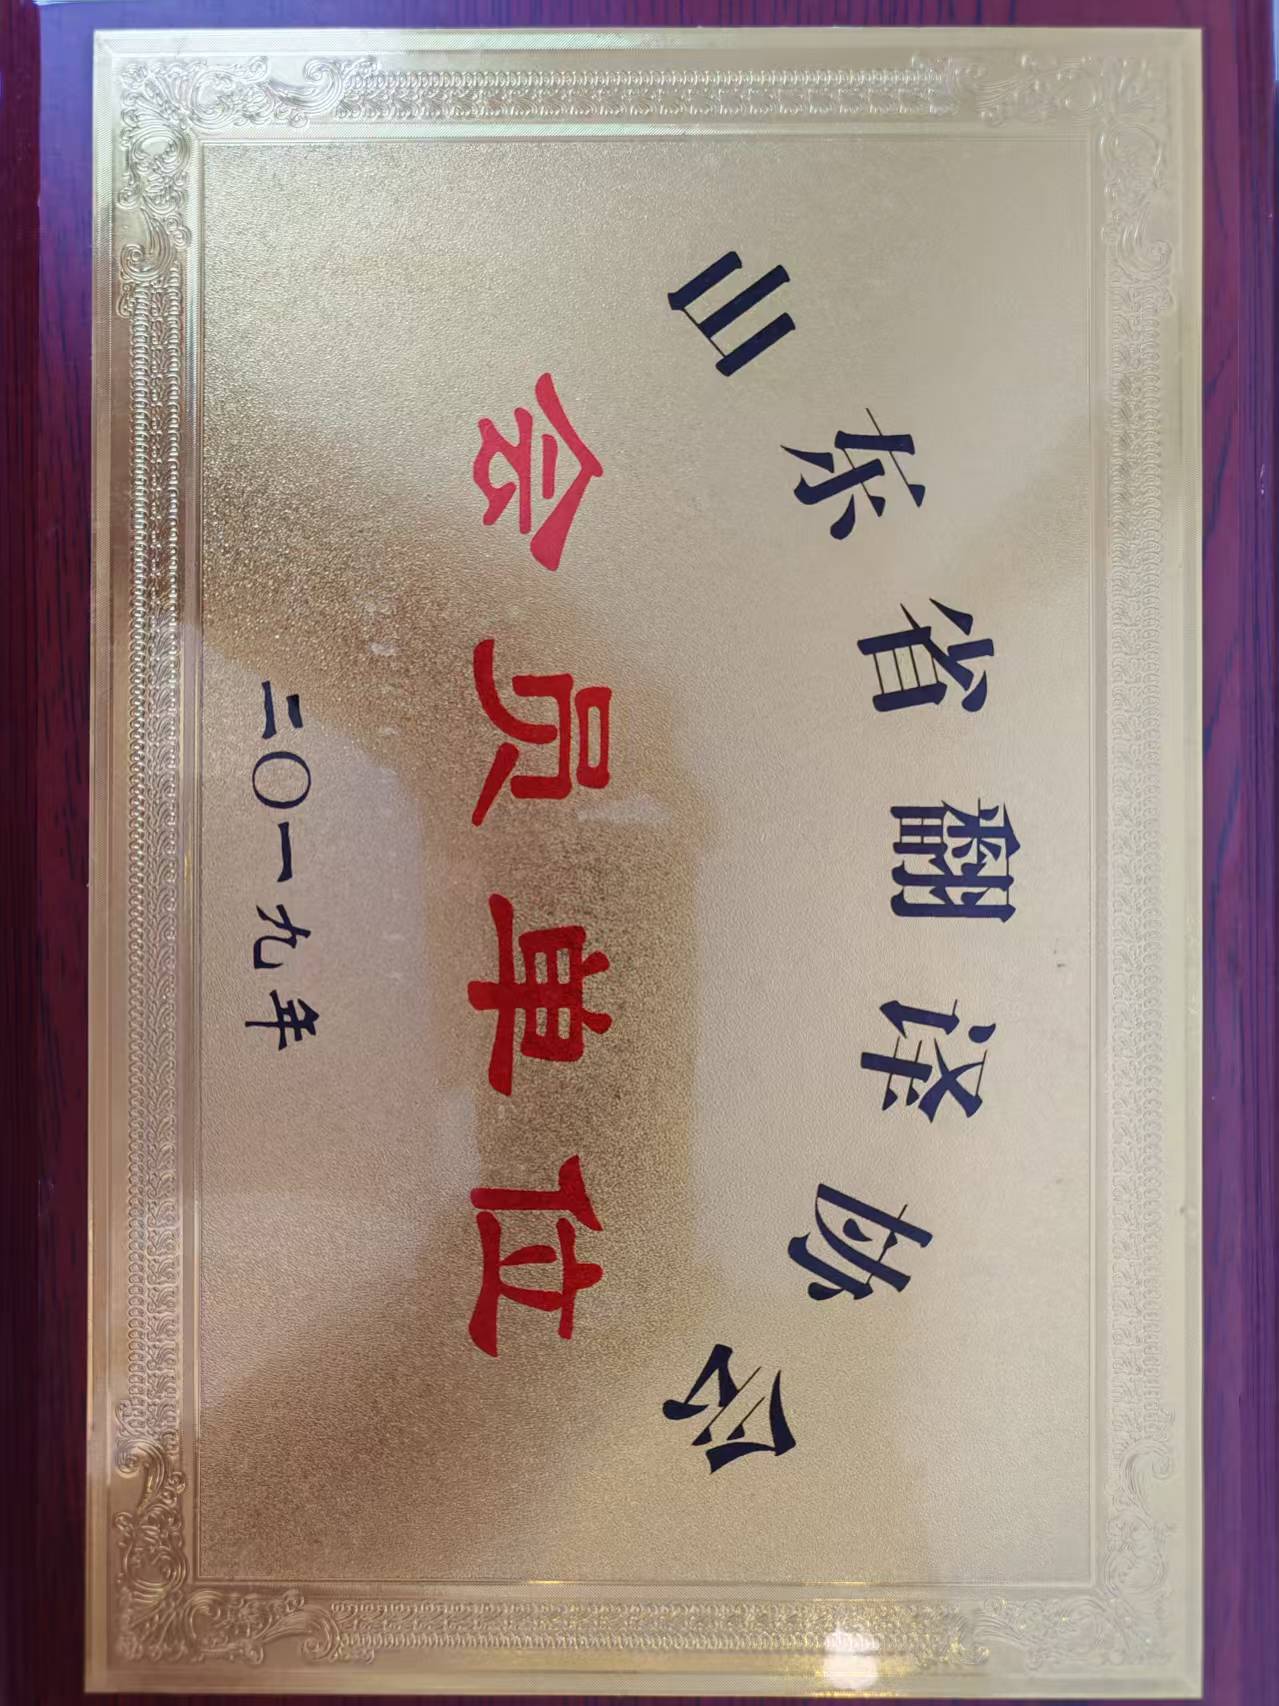 山东省翻译协会
会员单位
二〇一九年